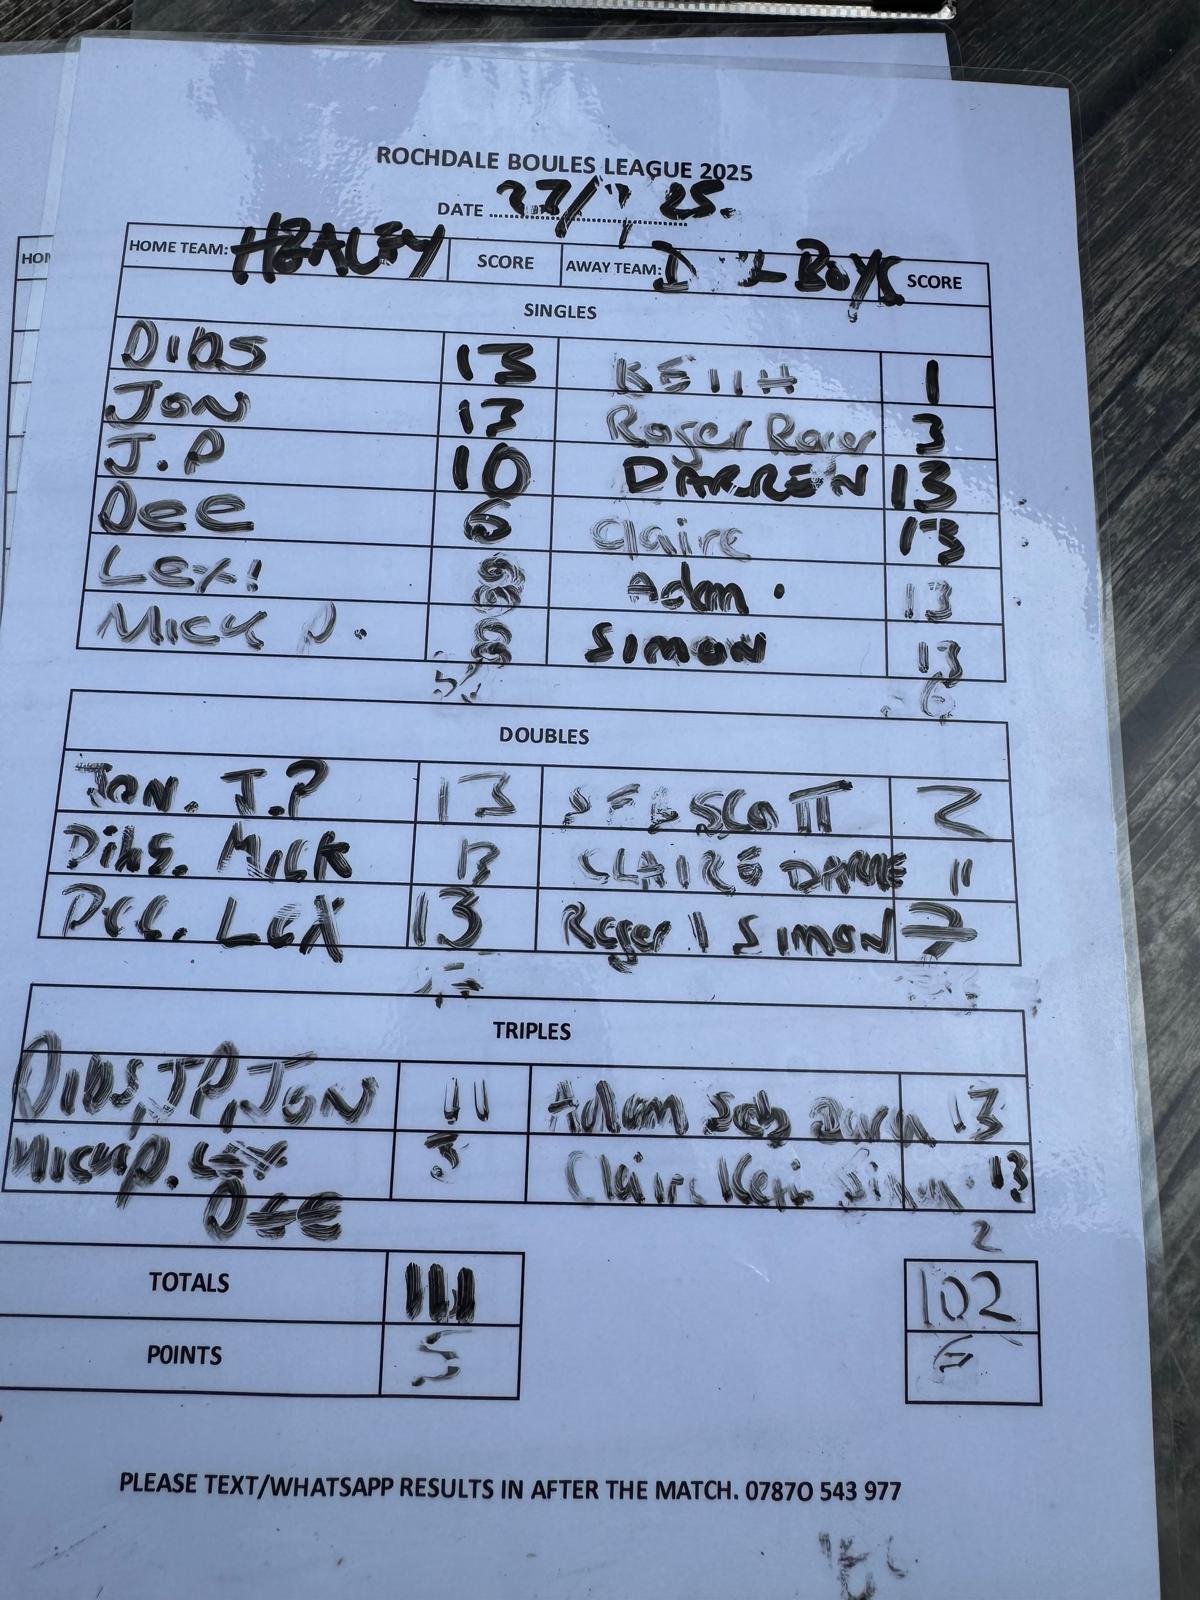 ROCHDALE BOULES LEAGUE 2025
DATE 27/ 25.
HOME TEAM: HEALEY SCORE AWAY TEAM: BOYS SCORE
SINGLES
DIBS 13 KEITH 1
JON 13 Roger 3
J.P 10 DARREN 13
Dee 6 Claire 13
Lexi 8 Adam 13
MICK P. 8 SIMON 13
DOUBLES
JON. J.P 13 SEB SCOTT 2
Dibs. MICK 13 CLAIRE DARRE 11
Dee. LEX 13 Roger SIMON 7
TRIPLES
DIBS, JP, JON 11 Adam Seb 13
MICK P. LEX Claire 13
DEE
2
TOTALS 111 102
POINTS 5
PLEASE TEXT/WHATSAPP RESULTS IN AFTER THE MATCH. 07870 543 977